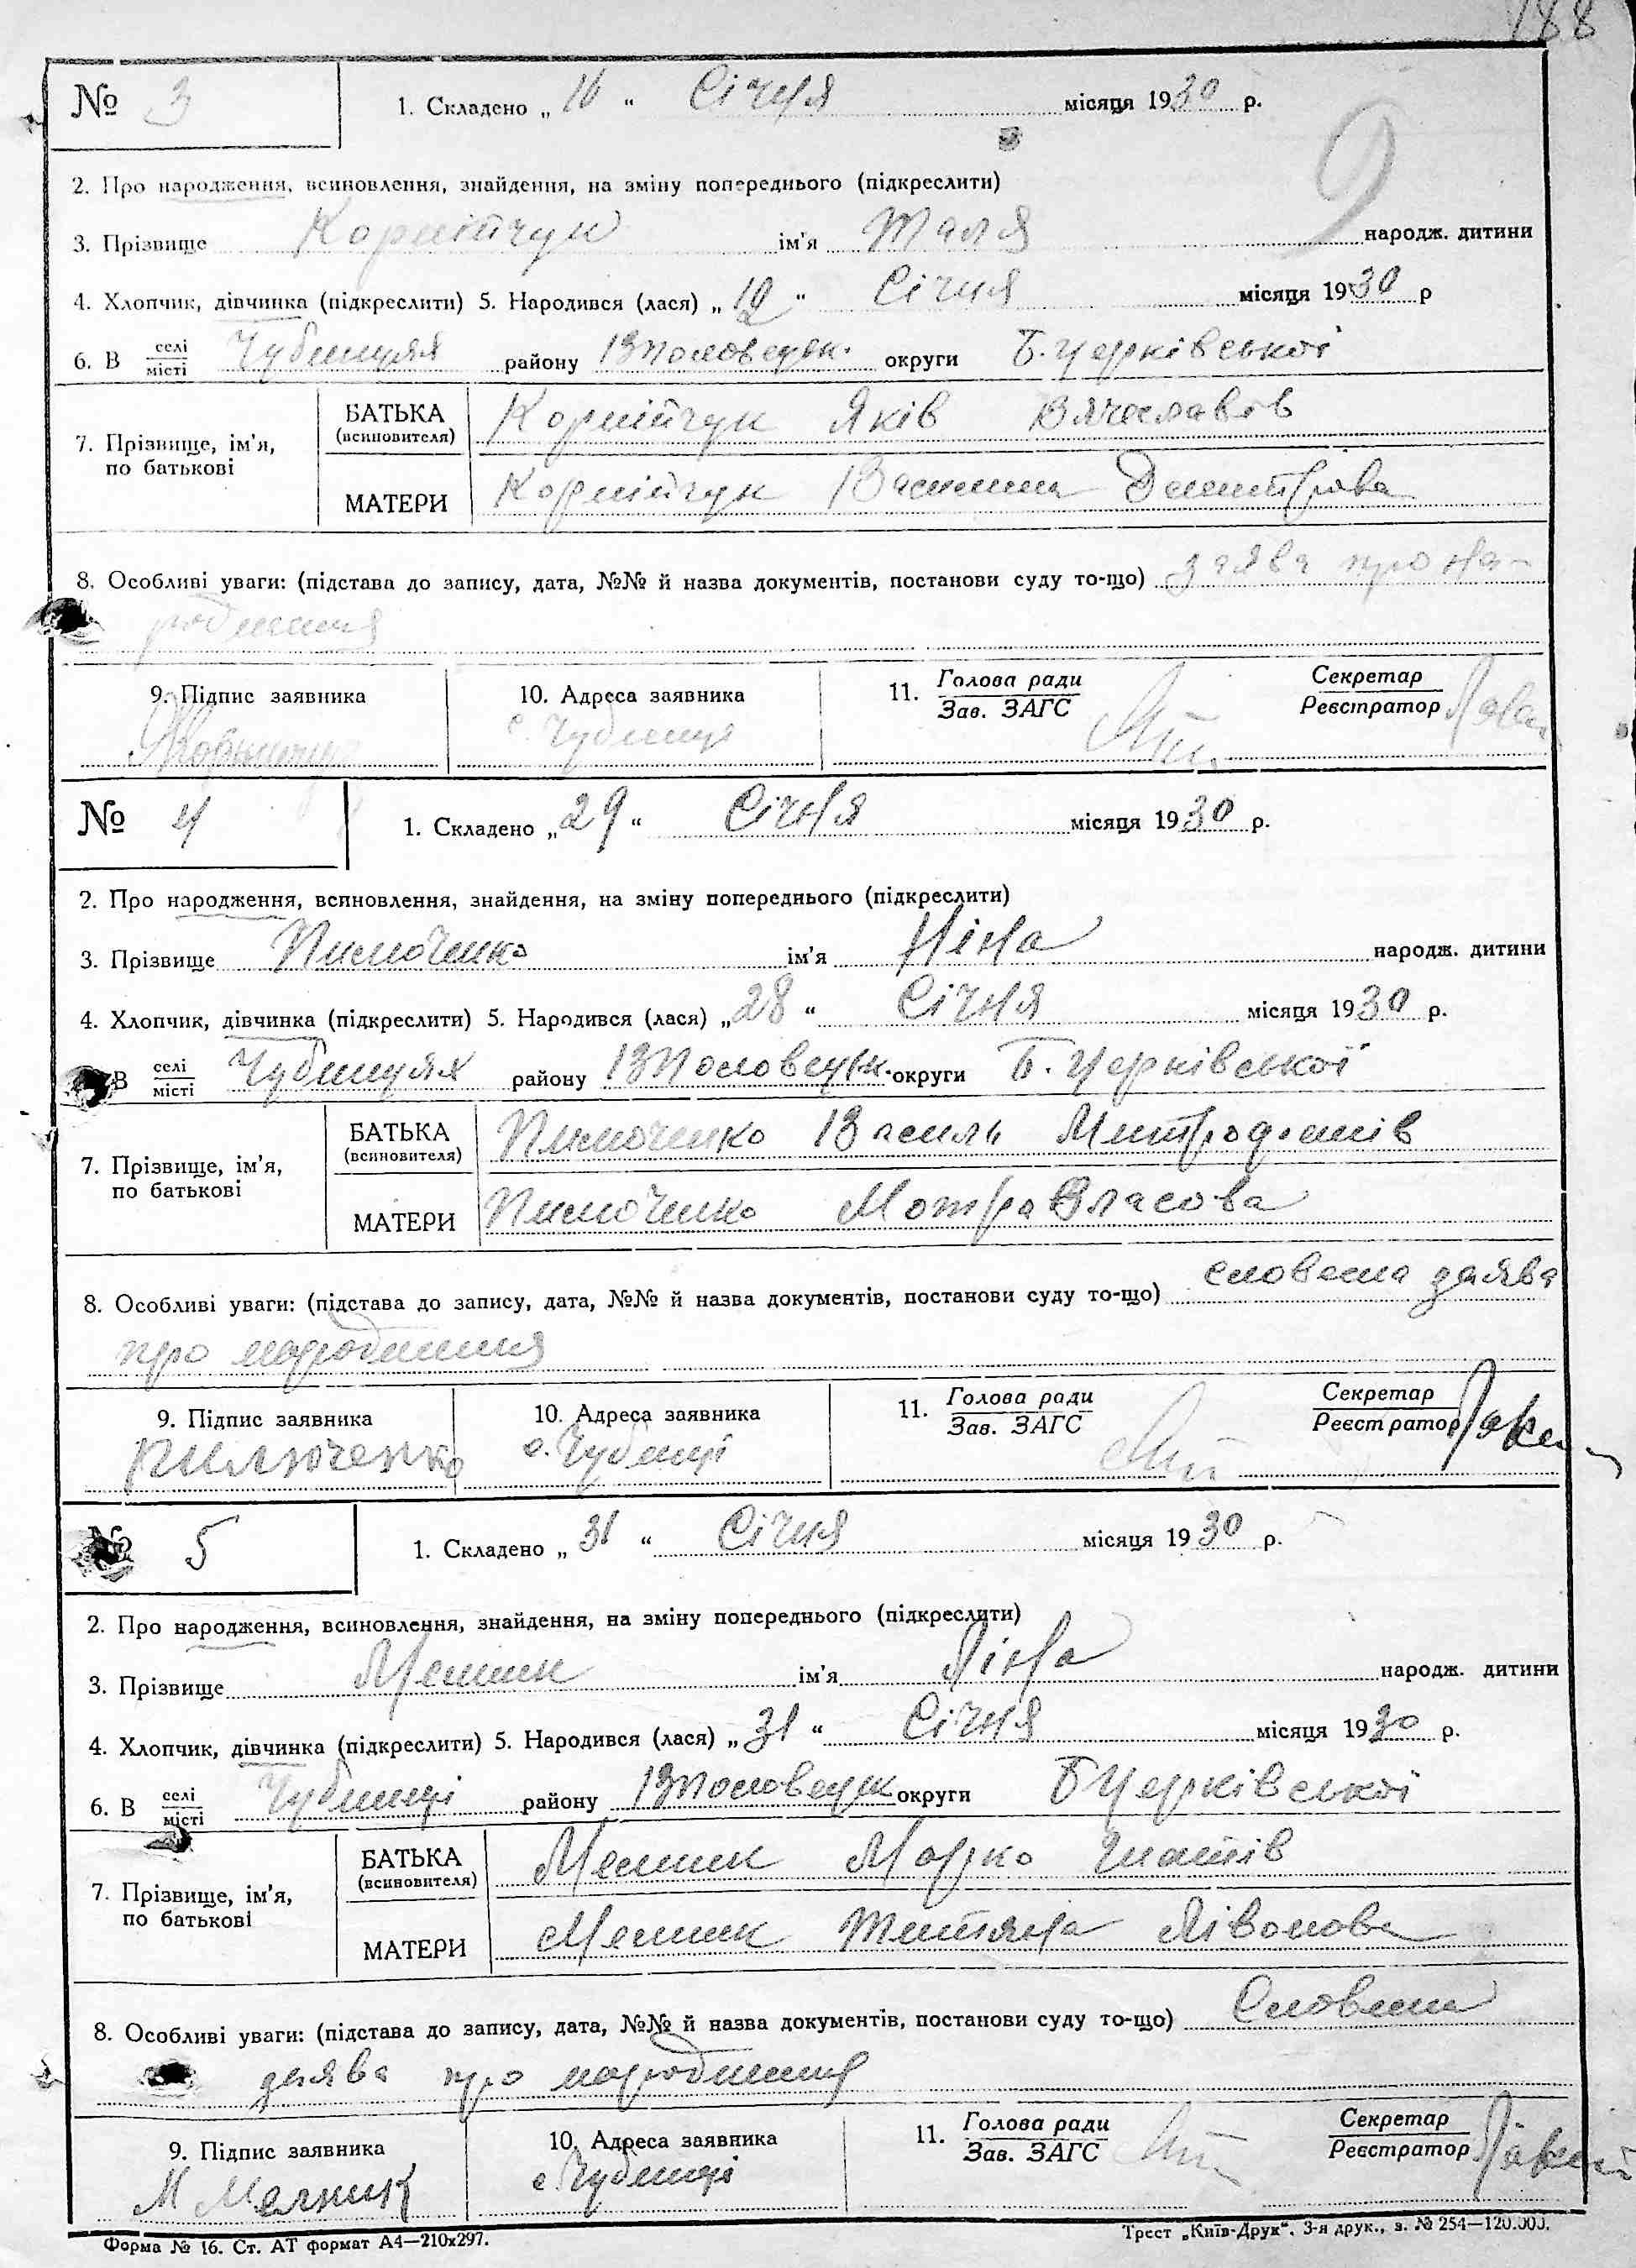 188
№ 3
1. Складено „ 16 “ Січня місяця 1930 р.
9
2. Про народження, всиновлення, знайдення, на зміну попереднього (підкреслити)
3. Прізвище Корнійчук ім'я Таля народж. дитини
4. Хлопчик, дівчинка (підкреслити) 5. Народився (лася) „ “ Січня місяця 1930 р
6. В селі місті Чубинцях району ВПоловецьк. округи Б.Церківської
7. Прізвище, ім'я, по батькові
БАТЬКА (всиновителя) Корнійчук Яків Вячеславов
МАТЕРИ Корнійчук Василина Дмитрова
8. Особливі уваги: (підстава до запису, дата, №№ й назва документів, постанови суду то-що) заява про на-
родження
9. Підпис заявника
10. Адреса заявника
11. Голова ради Зав. ЗАГС
Секретар Реєстратор
с. Чубинці
№ 4
1. Складено „29“ Січня місяця 1930 р.
2. Про народження, всиновлення, знайдення, на зміну попереднього (підкреслити)
3. Прізвище Пилюченко ім'я Ніна народж. дитини
4. Хлопчик, дівчинка (підкреслити) 5. Народився (лася) „28“ Січня місяця 1930 р.
В селі місті Чубинцях району ВПоловецьк. округи Б.Церківської
7. Прізвище, ім'я, по батькові
БАТЬКА (всиновителя) Пилюченко Василь Митрофанів
МАТЕРИ Пилюченко Мотра Власова
8. Особливі уваги: (підстава до запису, дата, №№ й назва документів, постанови суду то-що) словесна заява
про народження
9. Підпис заявника
10. Адреса заявника
11. Голова ради Зав. ЗАГС
Секретар Реєстратор
Пилюченко
с. Чубинці
№ 5
1. Складено „31“ Січня місяця 1930 р.
2. Про народження, всиновлення, знайдення, на зміну попереднього (підкреслити)
3. Прізвище Мелник ім'я Ліна народж. дитини
4. Хлопчик, дівчинка (підкреслити) 5. Народився (лася) „31“ Січня місяця 1930 р.
6. В селі місті Чубинці району ВПоловецьк округи БЦерківської
7. Прізвище, ім'я, по батькові
БАТЬКА (всиновителя) Мелник Марко Гнатів
МАТЕРИ Мелник Титяна Лівонова
8. Особливі уваги: (підстава до запису, дата, №№ й назва документів, постанови суду то-що) Словесна
заява про народження
9. Підпис заявника
10. Адреса заявника
11. Голова ради Зав. ЗАГС
Секретар Реєстратор
М Мелник
с. Чубинці
Форма № 16. Ст. АТ формат А4—210х297.
Трест „Київ-Друк“. 3-я друк., з. № 254—120.000.